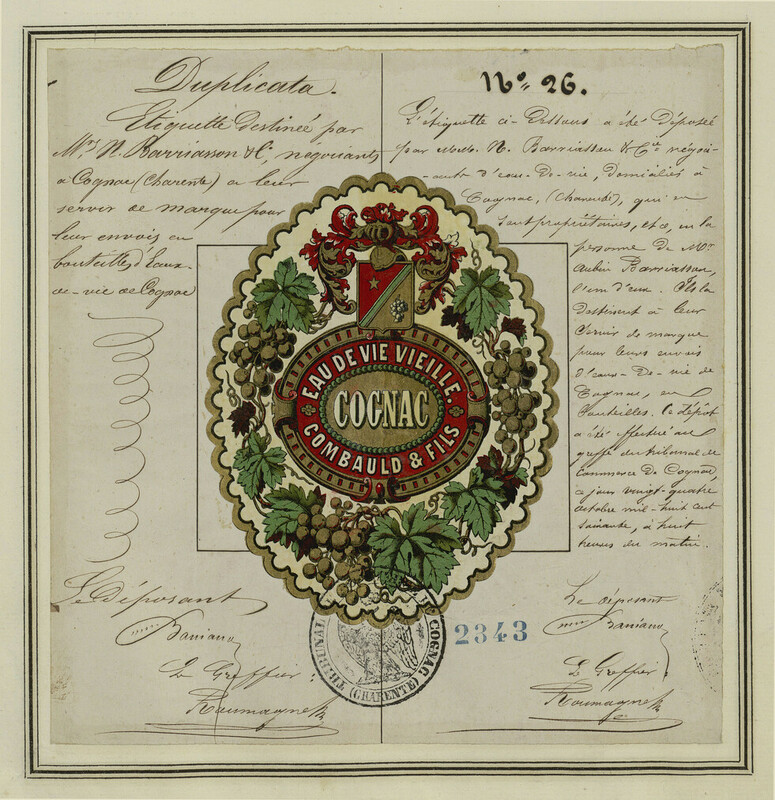 Duplicata.
Etiquette destinée par
Mrs. N. Barriasson & Cie, négociants
à Cognac (Charente) à leur
servir de marque pour
leur envois en
bouteilles d'Eaux-
de-vie de Cognac
Le déposant
Le Greffier
Roumagne
No. 26.
L'étiquette ci-Dessous a été Déposée
par N. Barriasson & Cie négoci-
ants d'eau-De-vie, Domiciliés à
Cognac, (Charente), qui en
sont propriétaires, et ce, en la
personne de Mr.
Aubin Barriasson,
l'un d'eux. Ils la
destinent à leur
Servir de marque
pour leurs envois
d'eaux-De-vie de
Cognac, en
bouteilles. Ce Dépôt
a été effectué au
greffe du tribunal de
Commerce de Cognac,
ce jour vingt-quatre
octobre mil-huit cent
soixante, à huit
heures du matin.
Le déposant
Le Greffier
Roumagne
EAU DE VIE VIEILLE.
COGNAC
COMBAULD & FILS
COGNAC
(CHARENTE)
2343